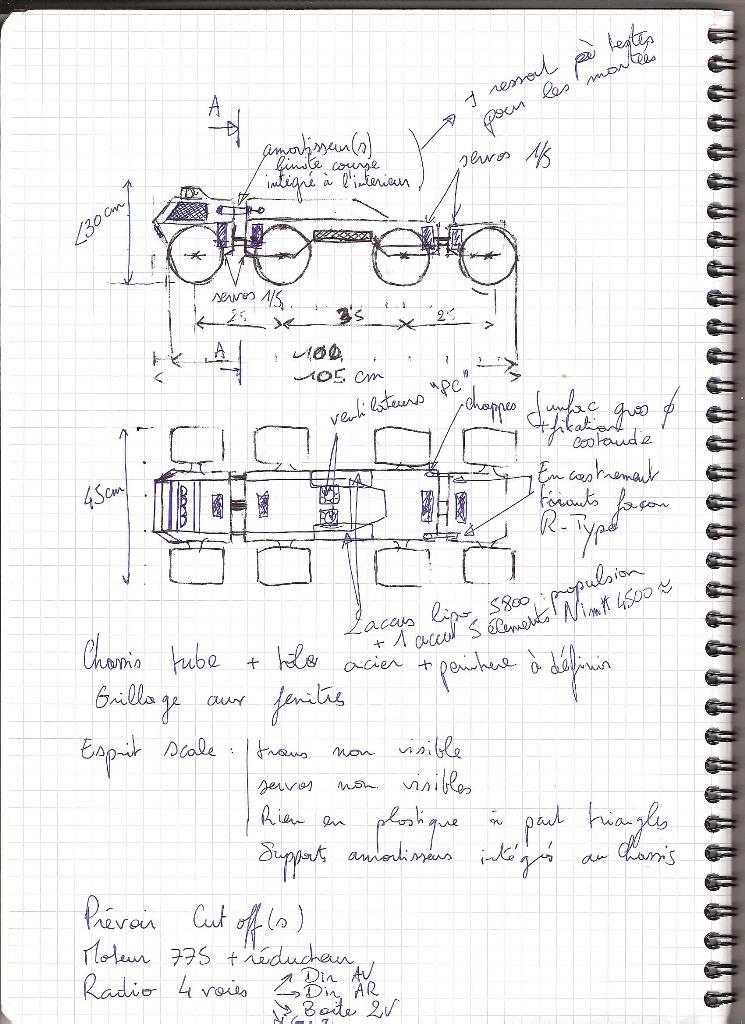 + ressort
pour les montées
A
amortisseur(s)
limite course
intégré à l'interieur
servos 1/5
<30 cm
servos 1/5
25 35 25
A
100
105 cm
ventilateurs "PC"
chappes
gros ø
+ fixation
costaude
45cm
Encastrement
façon
R-Type
2 accus lipo 5800 : propulsion
+ 1 accu 5 élements Nimh 4500 ≈
Chassis tube + tôle acier + peinture à définir
Grillage aux fenêtres
Esprit scale : trans non visible
servos non visibles
Rien en plastique à part triangles
Supports amortisseurs intégrés au chassis
Prévoir Cut off(s)
Moteur 775 + réducteur
Radio 4 voies Dir AV
Dir AR
Boite 2V